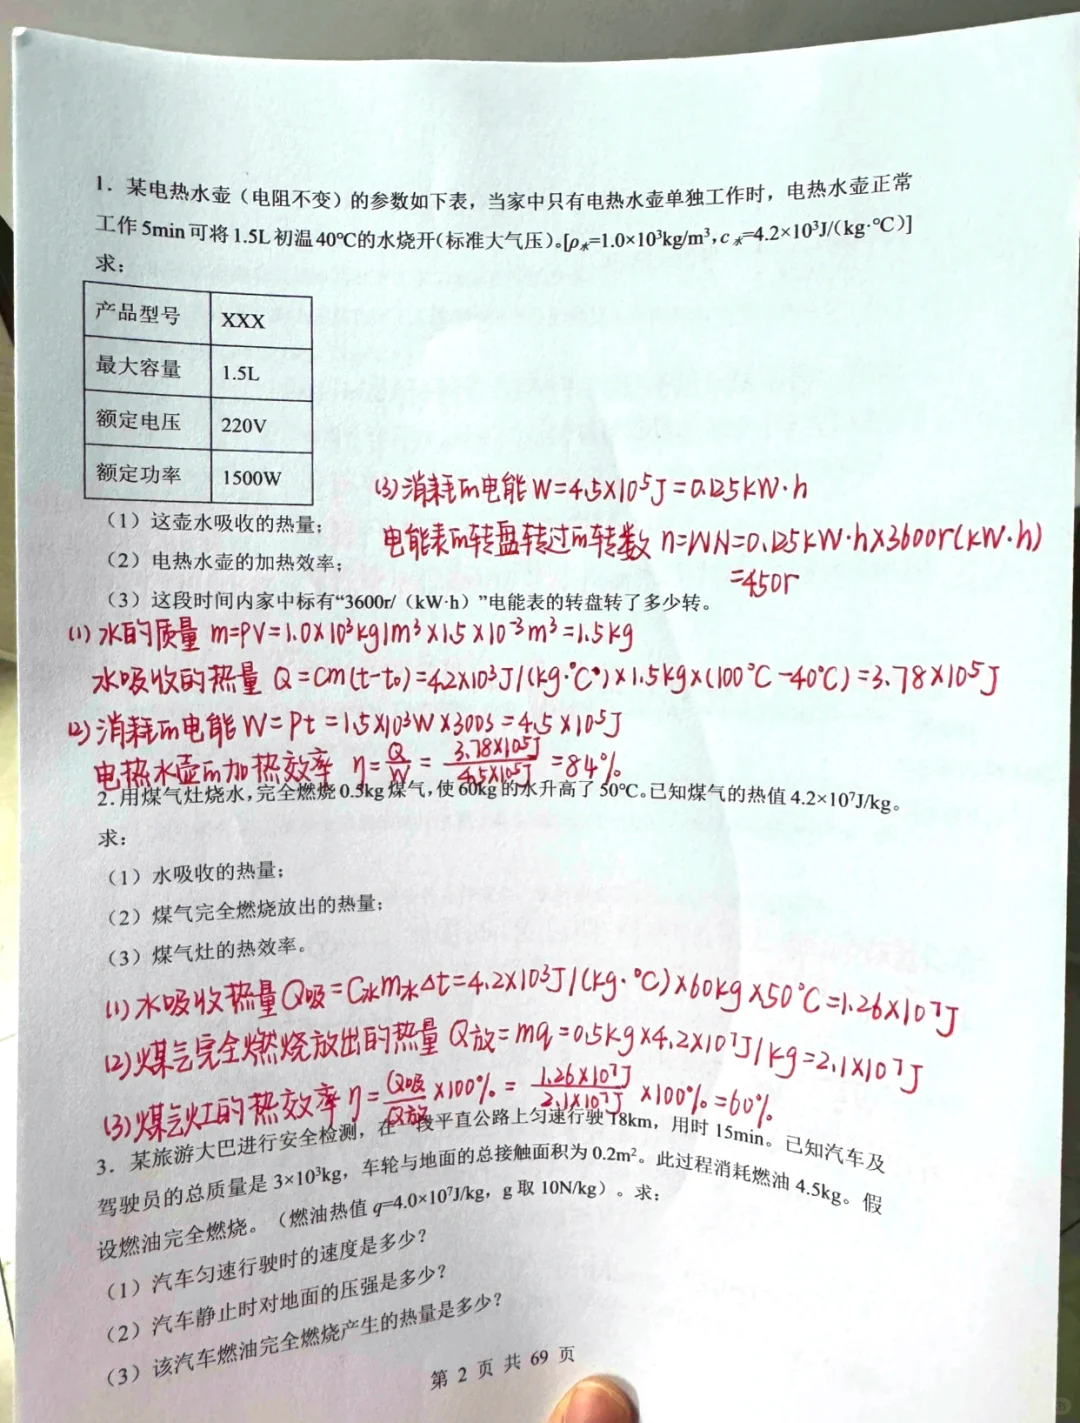 1. 某电热水壶（电阻不变）的参数如下表，当家中只有电热水壶单独工作时，电热水壶正常
工作 5min 可将 1.5L 初温 40℃的水烧开(标准大气压)。[ρ水=1.0×10³kg/m³，c水=4.2×10³J/(kg·℃)]
求：
产品型号 XXX
最大容量 1.5L
额定电压 220V
额定功率 1500W
（1）这壶水吸收的热量；
（2）电热水壶的加热效率；
（3）这段时间内家中标有“3600r/（kW·h）”电能表的转盘转了多少转。
(3)消耗的电能 W=4.5×10⁵J=0.125kW·h
电能表的转盘转过的转数 n=WN=0.125kW·h×3600r(kW·h)
=450r
(1) 水的质量 m=ρV=1.0×10³kg/m³×1.5×10⁻³m³=1.5kg
水吸收的热量 Q=cm(t-t₀)=4.2×10³J/(kg·℃)×1.5kg×(100℃-40℃)=3.78×10⁵J
(2)消耗的电能 W=Pt=1.5×10³W×300s=4.5×10⁵J
电热水壶的加热效率 η=Q/W=3.78×10⁵J/4.5×10⁵J=84%
2. 用煤气灶烧水，完全燃烧 0.5kg 煤气，使 60kg 的水升高了 50℃。已知煤气的热值 4.2×10⁷J/kg。
求：
（1）水吸收的热量；
（2）煤气完全燃烧放出的热量；
（3）煤气灶的热效率。
(1)水吸收热量Q吸=C水m水Δt=4.2×10³J/(kg·℃)×60kg×50℃=1.26×10⁷J
(2)煤气完全燃烧放出的热量 Q放=mq=0.5kg×4.2×10⁷J/kg=2.1×10⁷J
(3)煤气灶的热效率η=Q吸/Q放×100%=1.26×10⁷J/2.1×10⁷J×100%=60%
3. 某旅游大巴进行安全检测，在一段平直公路上匀速行驶 18km，用时 15min。已知汽车及
驾驶员的总质量是 3×10³kg，车轮与地面的总接触面积为 0.2m²。此过程消耗燃油 4.5kg。假
设燃油完全燃烧。（燃油热值 q=4.0×10⁷J/kg，g 取 10N/kg）。求：
（1）汽车匀速行驶时的速度是多少？
（2）汽车静止时对地面的压强是多少？
（3）该汽车燃油完全燃烧产生的热量是多少？
第 2 页 共 69 页